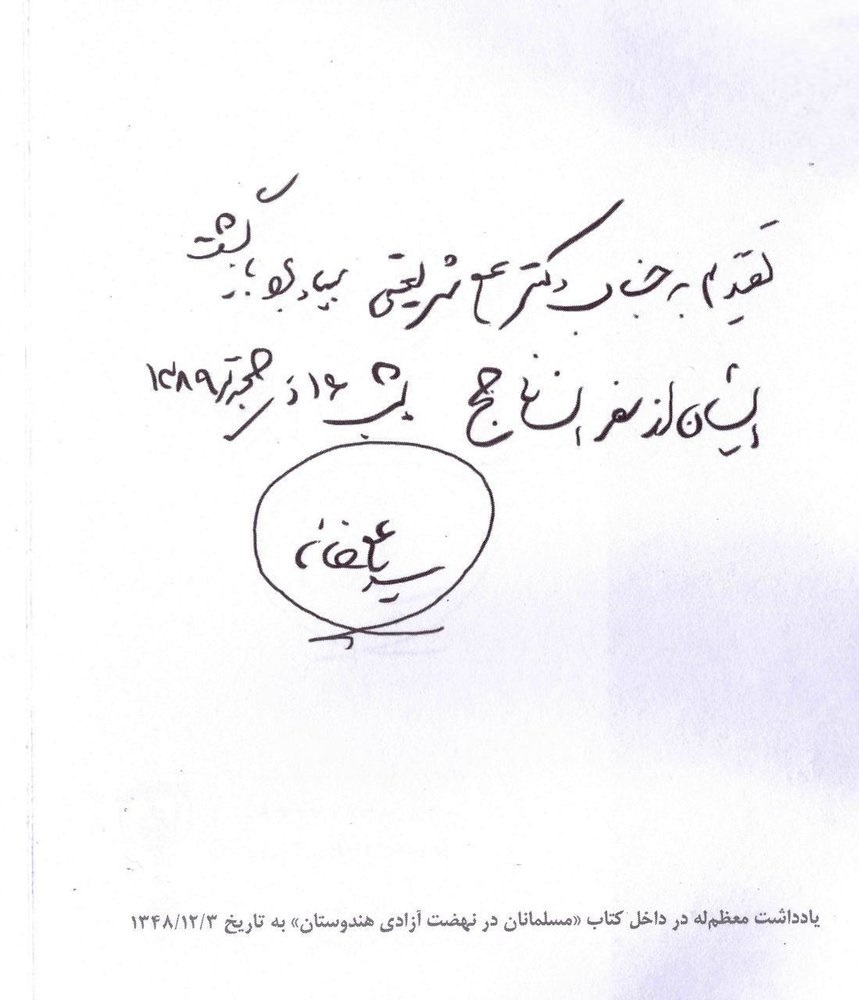 تقدیم به جناب دکتر علی شریعتی بیادبود بازگشت
ایشان از سفر حج ۱۶ ذیحجه ۱۳۸۹
سید علی خامنه
یادداشت معظم‌له در داخل کتاب «مسلمانان در نهضت آزادی هندوستان» به تاریخ ۱۳۴۸/۱۲/۳